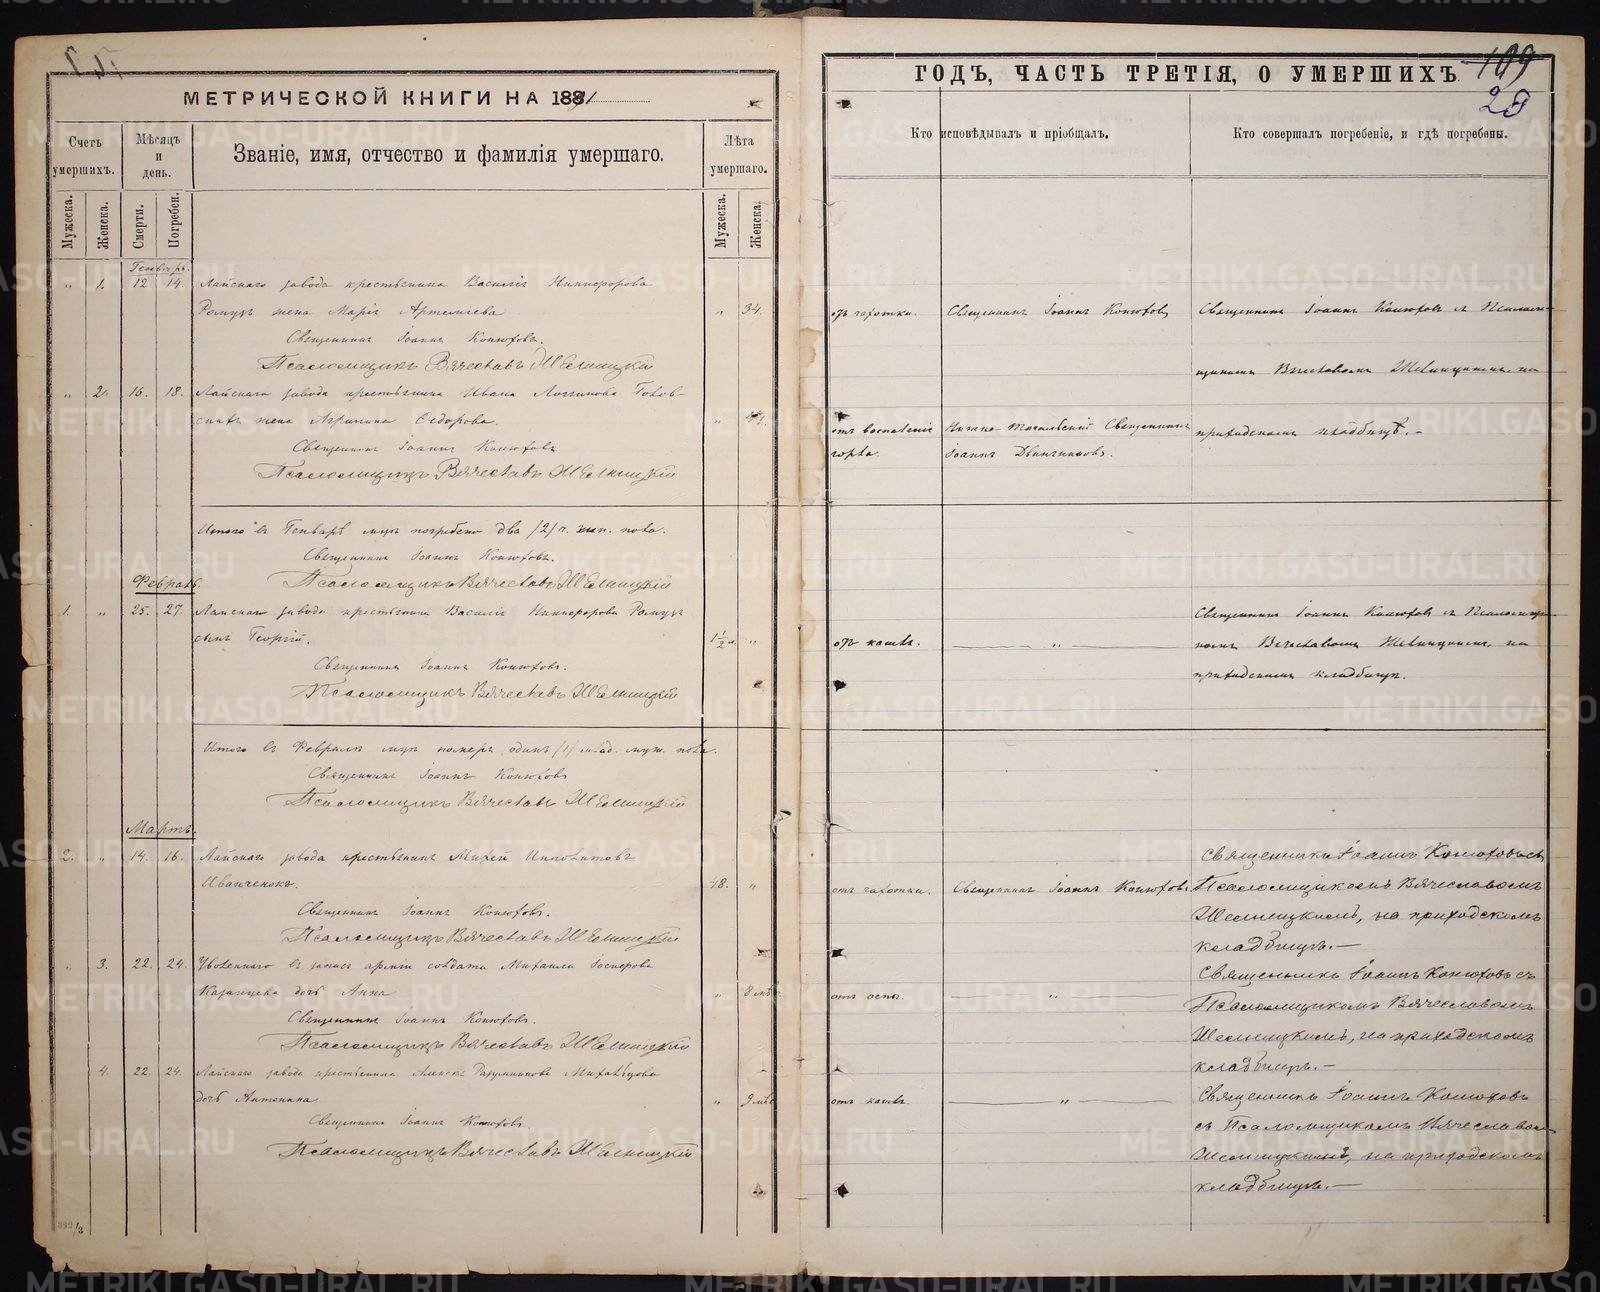 МЕТРИЧЕСКОЙ КНИГИ НА 1891
Счетъ умершихъ.
Мѣсяцъ и день.
Званіе, имя, отчество и фамилія умершаго.
Лѣта умершаго.
Мужеска.
Женска.
Смерти.
Погребен.
Мужеска.
Женска.
Генварь.
" 1. 12 14. Лайскаго завода крестьянина Василія Никифорова
жена Марія Артемьева " 34.
Священникъ Іоаннъ Конюховъ.
Псаломщикъ Вячеславъ
" 2. 16. 18. Лайскаго завода крестьянина Ивана Логинова
жена Агрипина Ѳедорова. "
Священникъ Іоаннъ Конюховъ
Псаломщикъ Вячеславъ
Итого въ Генварѣ мцѣ погребено два /2/ ч. жен. пола.
Священникъ Іоаннъ Конюховъ.
Псаломщикъ Вячеславъ
Февраль.
1. " 25. 27. Лайскаго завода крестьянина Василія Никифорова
сынъ Георгій. 1½ "
Священникъ Іоаннъ Конюховъ.
Псаломщикъ Вячеславъ
Итого въ Февралѣ мцѣ одинъ /1/ млад. муж. пола.
Священникъ Іоаннъ Конюховъ
Псаломщикъ Вячеславъ
Мартъ.
2. " 14. 16. Лайскаго завода крестьянинъ Михей
48. "
Священникъ Іоаннъ Конюховъ.
Псаломщикъ Вячеславъ
" 3. 22. 24. Уволеннаго въ запасъ арміи солдата Михаила
Казанцева дочь Анна " 8 мѣс
Священникъ Іоаннъ Конюховъ.
Псаломщикъ Вячеславъ
4. 22. 24. Лайскаго завода крестьянина
дочь Антонина " 9 мѣс
Священникъ Іоаннъ Конюховъ.
Псаломщикъ Вячеславъ
392/3
ГОДЪ, ЧАСТЬ ТРЕТІЯ, О УМЕРШИХЪ
109
Кто исповѣдывалъ и пріобщалъ.
Кто совершалъ погребеніе, и гдѣ погребены.
отъ чахотки. Священникъ Іоаннъ Конюховъ Священникъ Іоаннъ Конюховъ съ Псалом-
щикомъ Вячеславомъ на
отъ воспаленія Нижне-Тагильскій Священникъ приходскомъ кладбищѣ.-
горла. Іоаннъ
Священникъ Іоаннъ Конюховъ съ Псаломщи-
отъ кашля. " комъ Вячеславомъ на
приходскомъ кладбищѣ.
Священникъ Іоаннъ Конюховъ съ
отъ чахотки. Священникъ Іоаннъ Конюховъ. Псаломщикомъ Вячеславомъ
на приходскомъ
кладбищѣ.-
Священникъ Іоаннъ Конюховъ съ
отъ оспы. " Псаломщикомъ Вячеславомъ
на приходскомъ
кладбищѣ.-
отъ кашля " Священникъ Іоаннъ Конюховъ
съ Псаломщикомъ Вячеславом-
на приходскомъ
кладбищѣ.-
METRIKI.GASO-URAL.RU